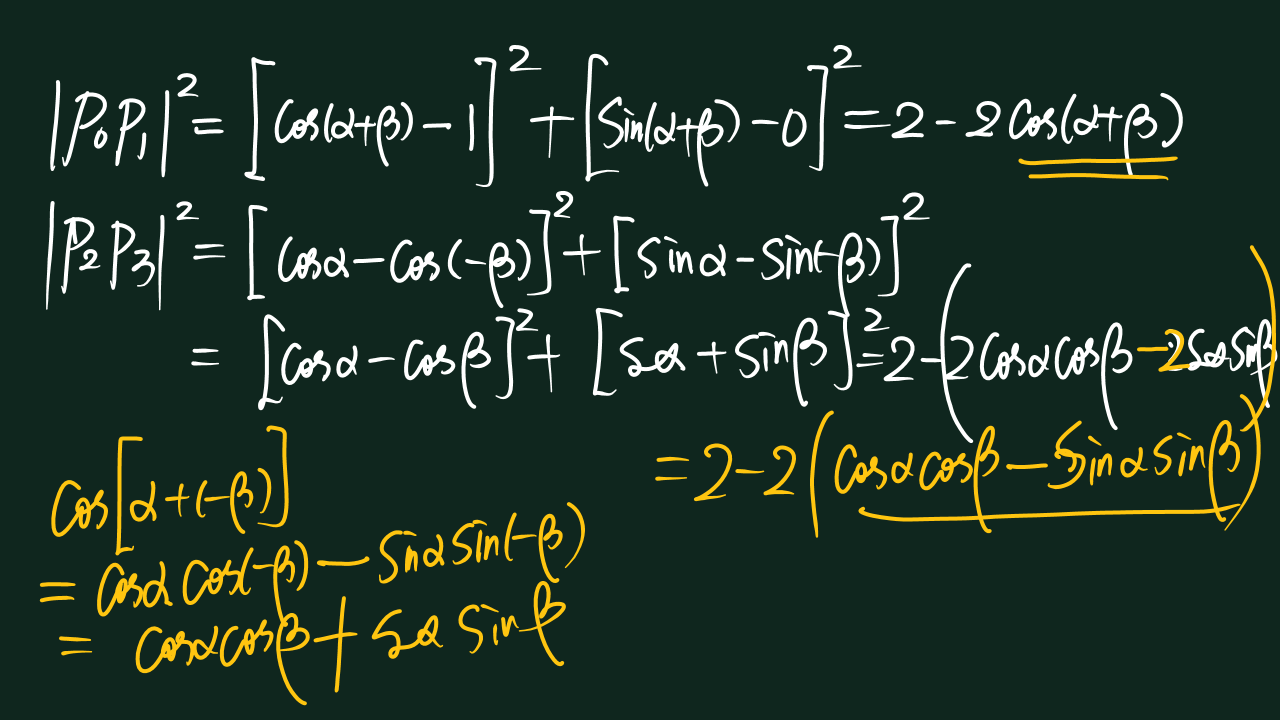 |P₀P₁|² = [cos(α+β) − 1]² + [sin(α+β) − 0]² = 2 − 2cos(α+β)
|P₂P₃|² = [cosα − cos(−β)]² + [sinα − sin(−β)]²
= [cosα − cosβ]² + [sα + sinβ]² = 2 − (2cosαcosβ − 2sα sinβ)
= 2 − 2(cosαcosβ − sinαsinβ)
cos[α + (−β)]
= cosα cos(−β) − sinα sin(−β)
= cosαcosβ + sα sinβ